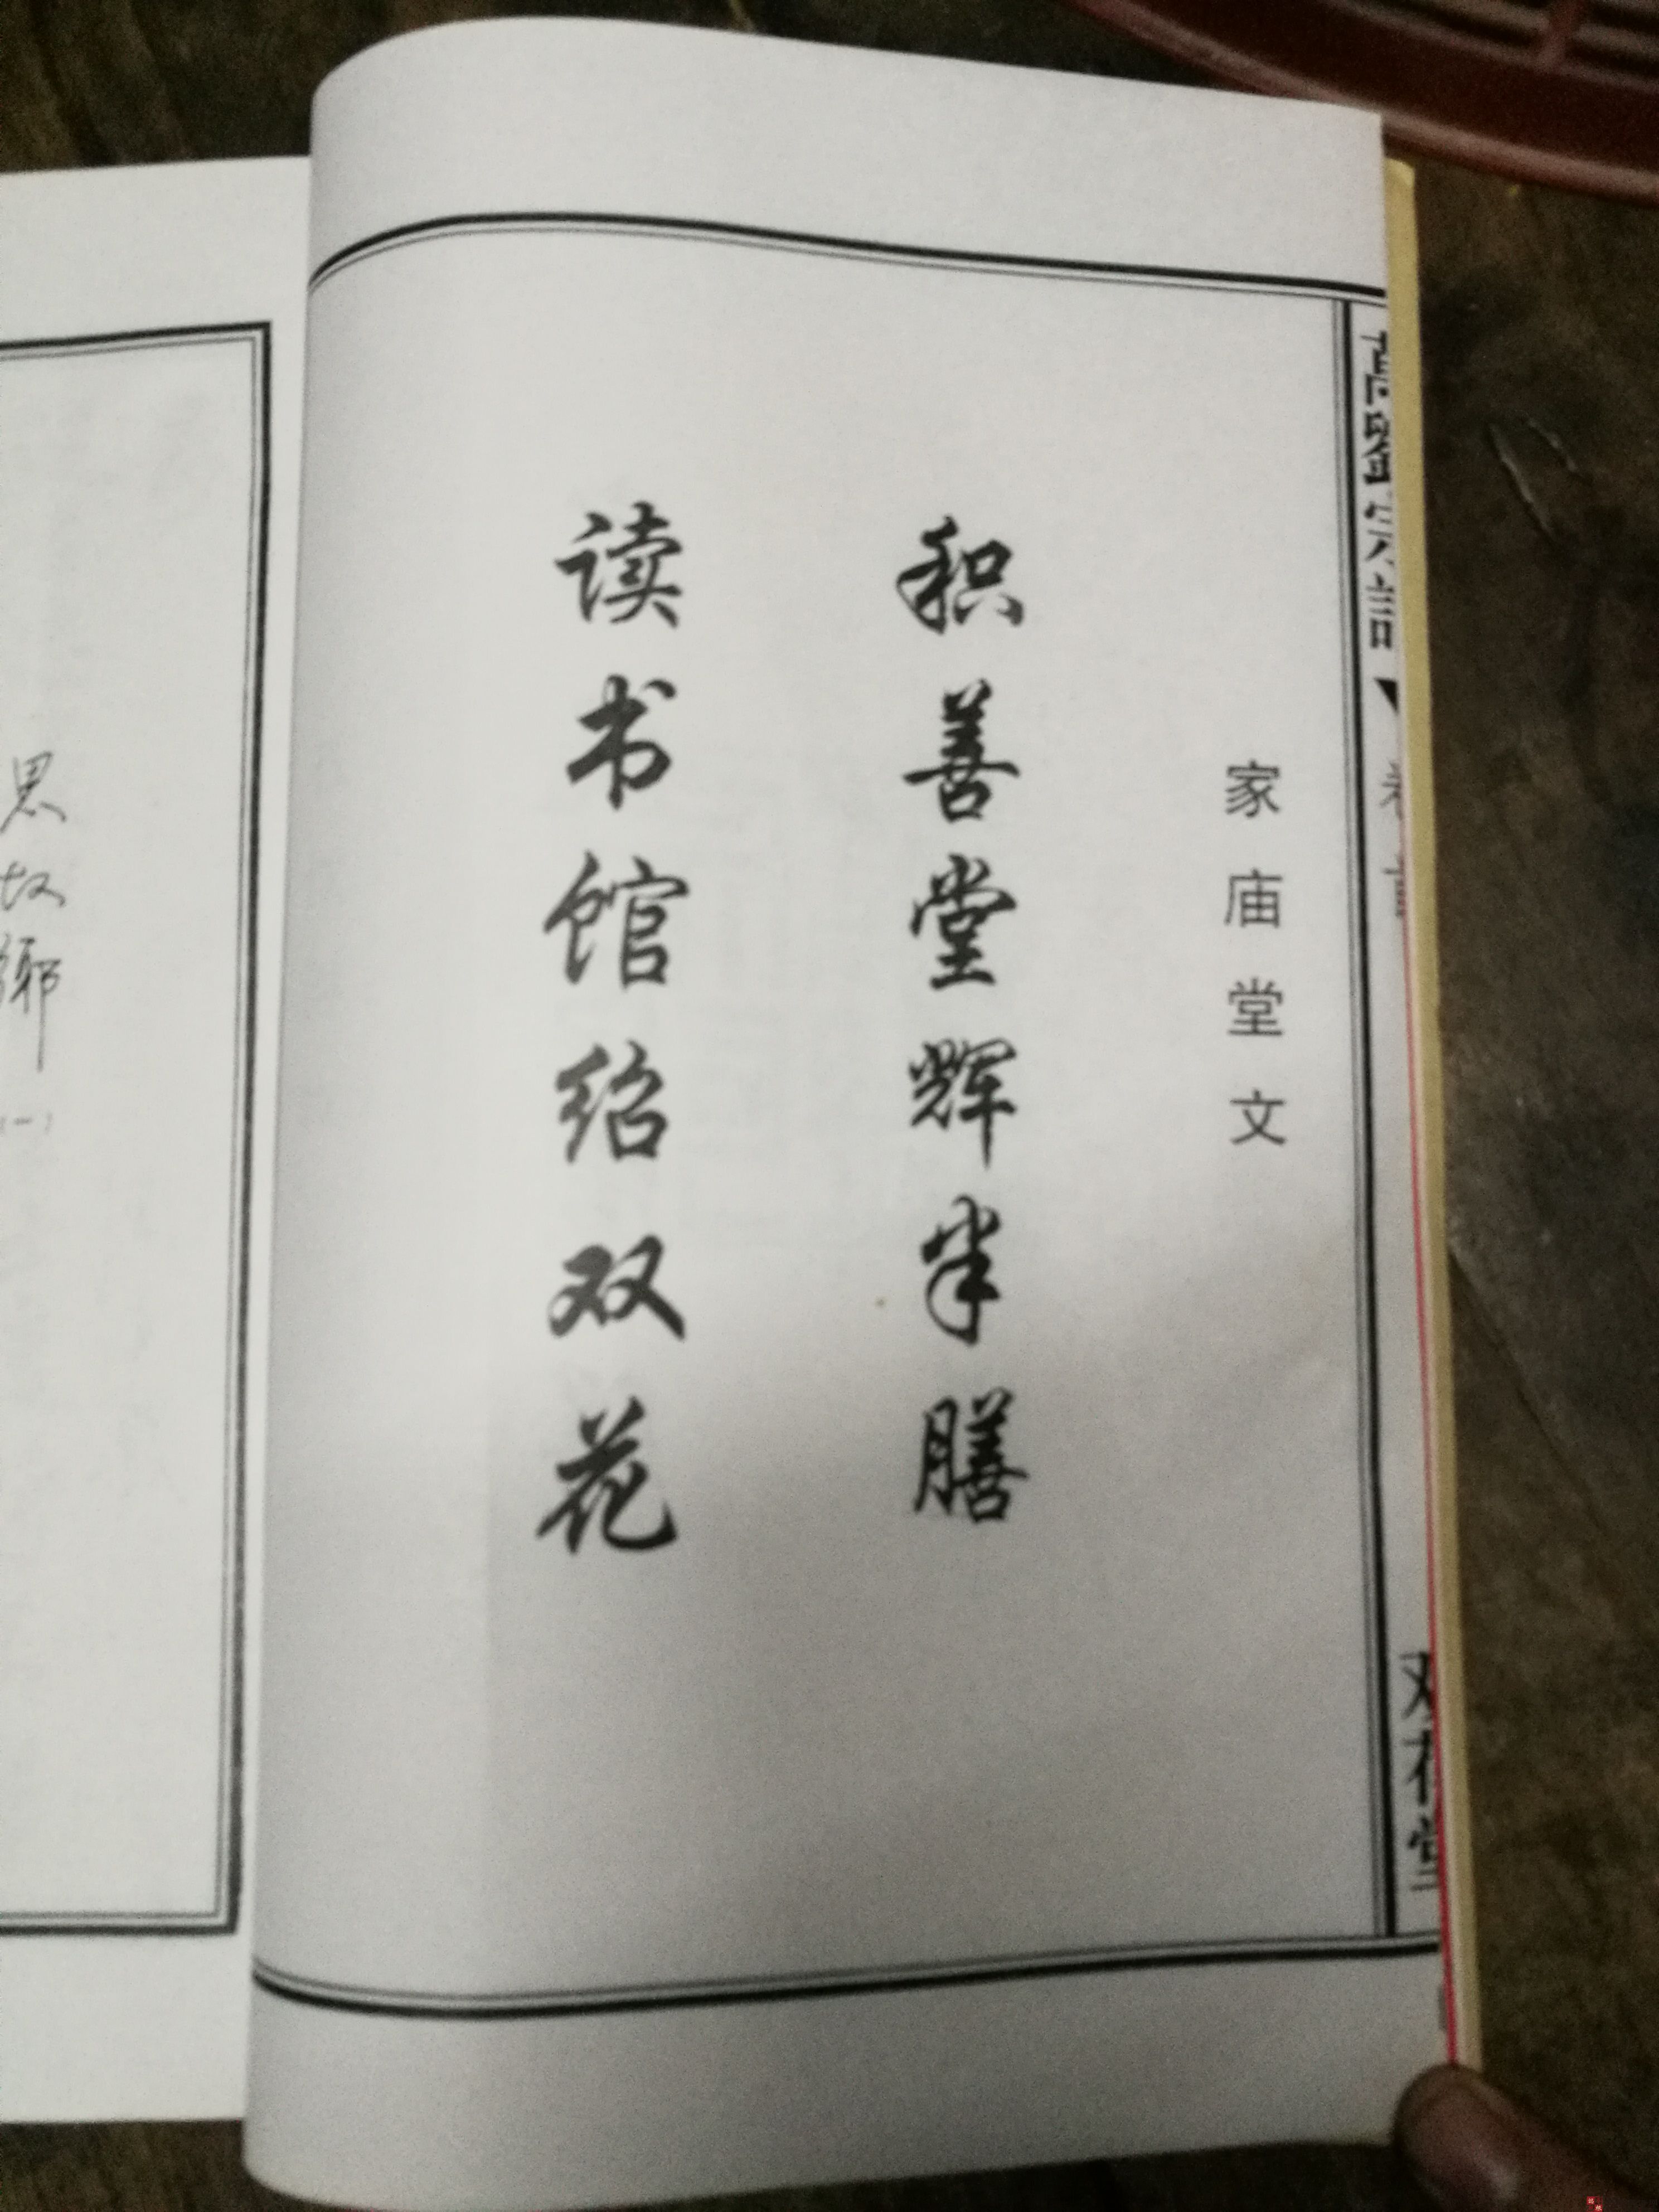 家庙堂文
积善堂辉半膳
读书馆绍双花
思故鄉
(一)
双花堂